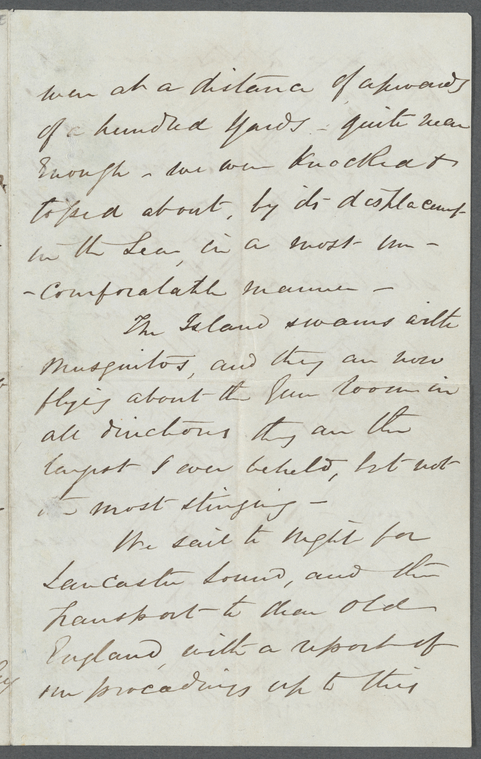 were at a distance of upwards
of a hundred Yards - quite near
Enough - we were Knocked &
tossed about, by its displacemt
in the Sea, in a most un-
-comforatable manner -
The Island swams with
Musquitos, and they are now
flyig about the Gun Room in
all directions they are the
largest I ever beheld, but not
most stinging -
We sail to Night for
Lancaster Sound, and the
Transport to dear Old
England, with a report of
our procedings up to this